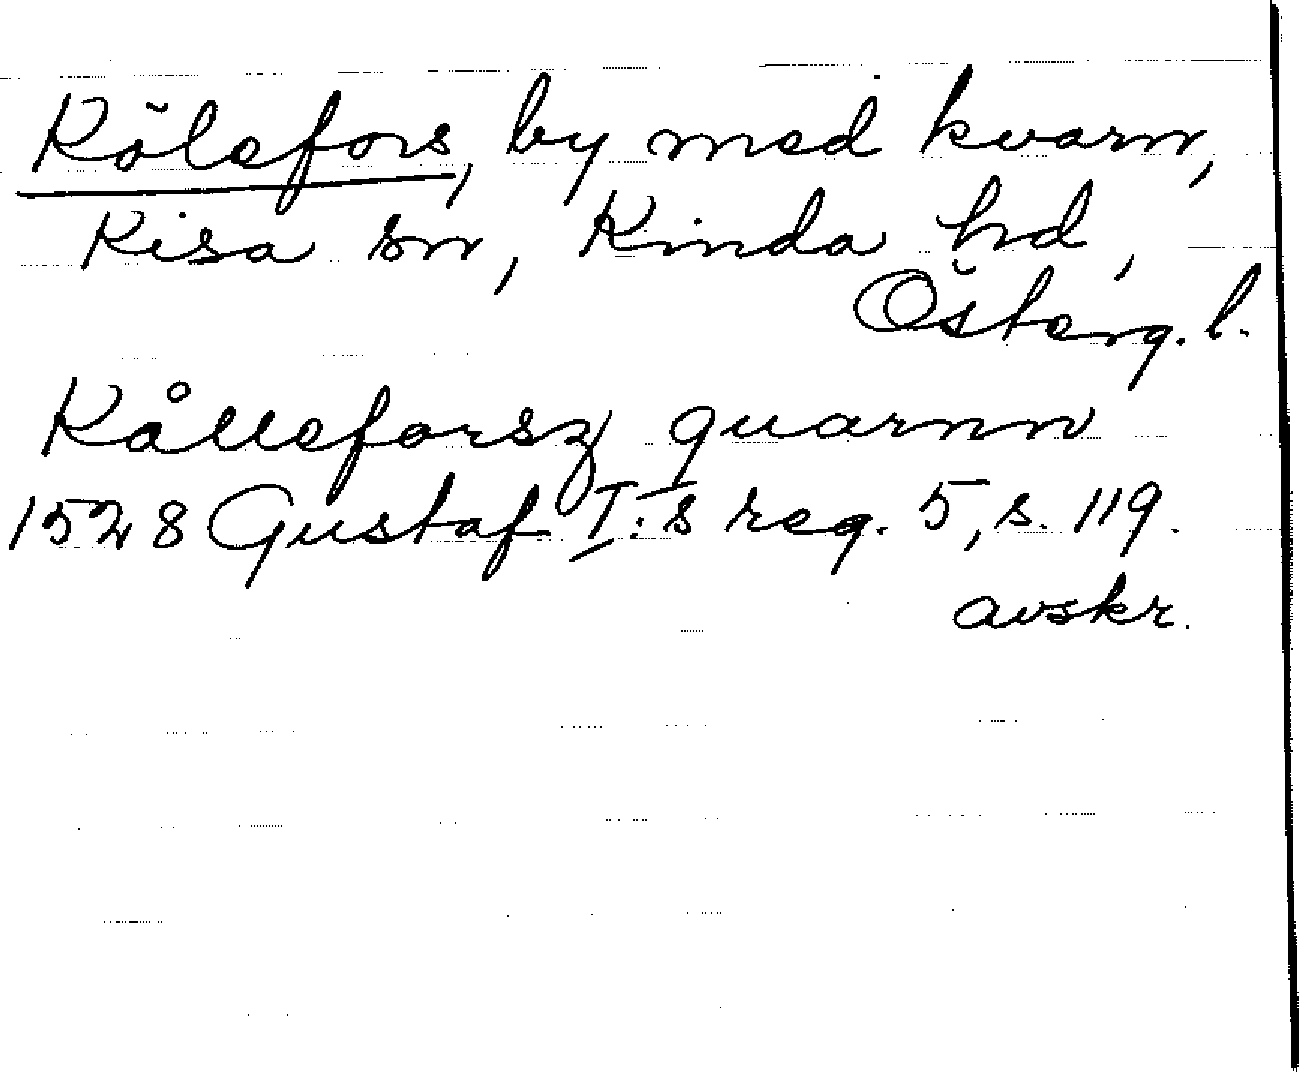 Kölefors, by med kvarn,
Kisa sn, Kinda hd,
Österg. l.
Kålleforsz quarnn
1528 Gustaf I:s reg. 5, s. 119.
avskr.